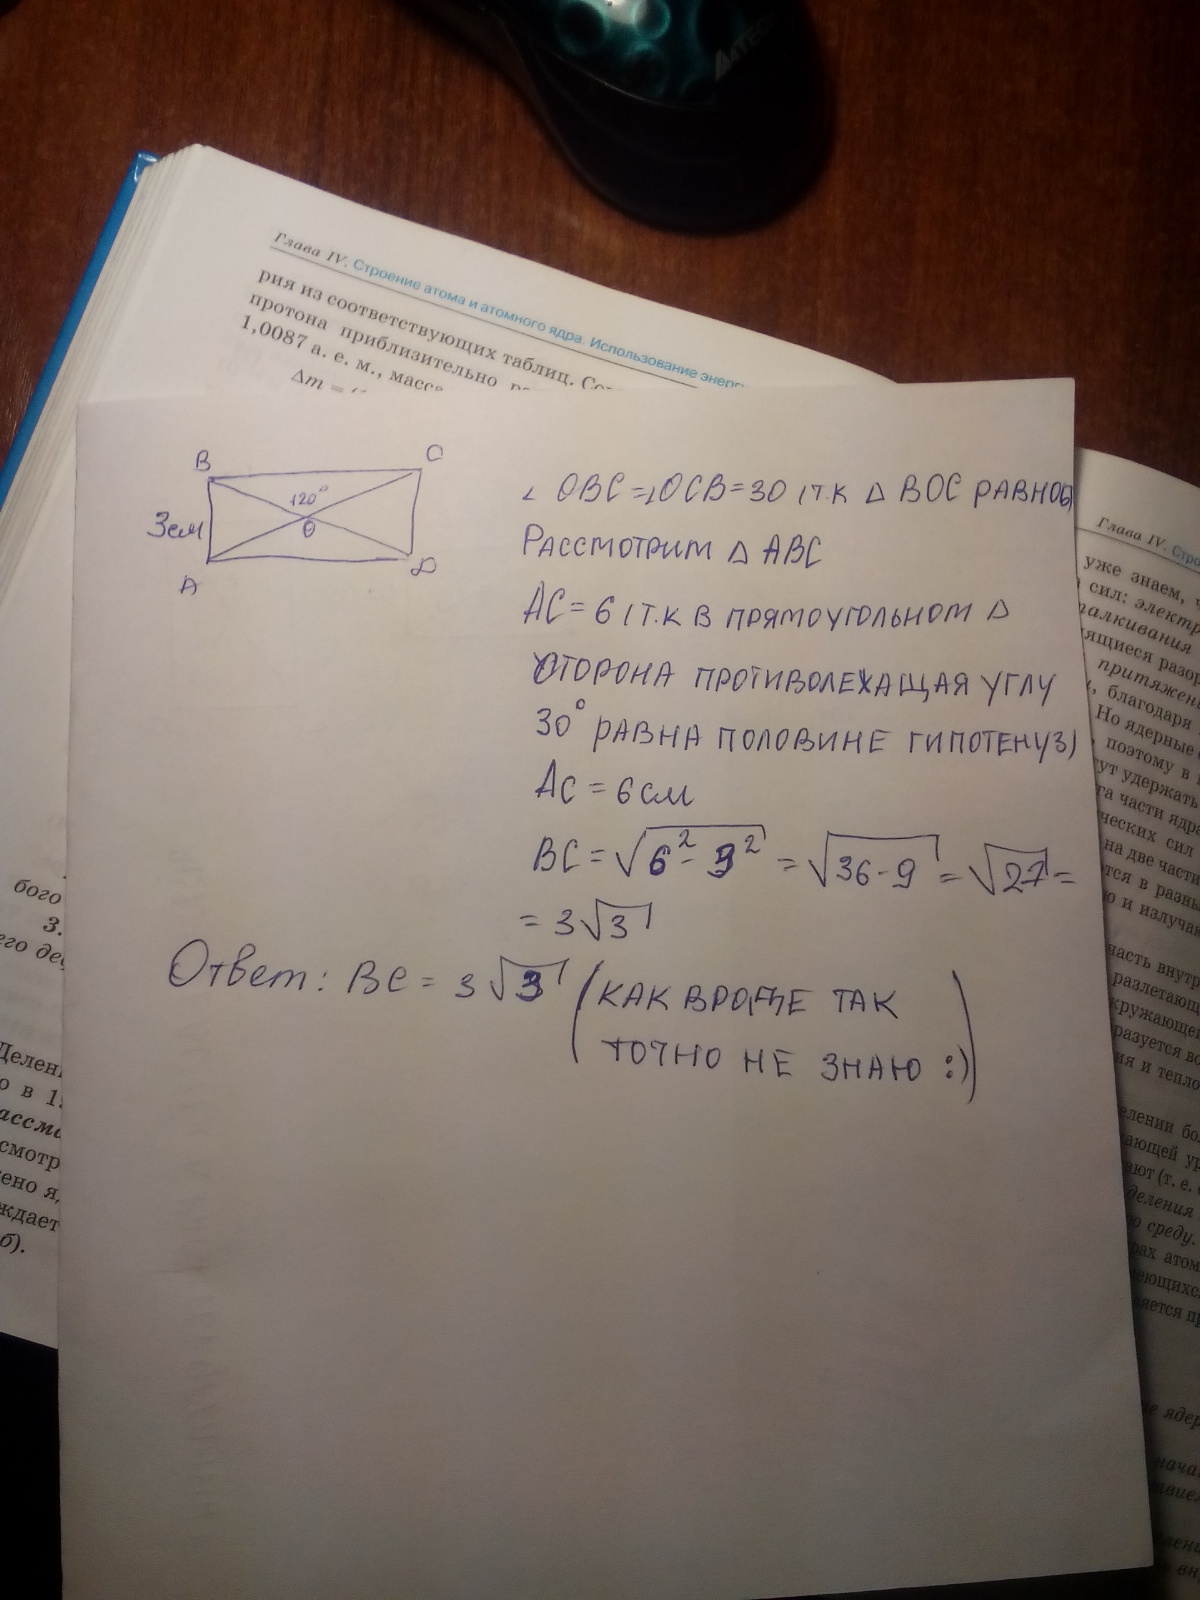 A4TECH
Глава IV. Строение атома и атомного ядра. Использование энерг
рия из соответствующих таблиц. Со
протона приблизительно
1,0087 а. е. м., масса
Δm =
B
C
120°
O
3см
A
D
∠ OBC=∠OCB=30 (Т.К Δ BOC РАВНОБ)
РАССМОТРИМ Δ ABC
AC = 6 (Т.К В ПРЯМОУГОЛЬНОМ Δ
СТОРОНА ПРОТИВОЛЕЖАЩАЯ УГЛУ
30° РАВНА ПОЛОВИНЕ ГИПОТЕНУЗ)
AC = 6 СМ
BC = √6² - 3² = √36 - 9 = √27 =
= 3√3
Ответ: BC = 3√3 (КАК ВРОДЕ ТАК
ТОЧНО НЕ ЗНАЮ :))
бого
3.
его
Делен
о в 1
смотр
ено я
ждает
б).
Глава IV. Стро
уже знаем, ч
сил: электр
талкивания
ящиеся разор
притяжен
, благодаря
Но ядерные
поэтому в
ут удержать
га части ядра
ческих сил
на две части
тся в разны
ю и излуча
часть внутр
разлетающ
кружающей
разуется во
ия и тепло
елении бо
ающей
ают (т. е.
деления
ю среду.
рах атом
еющихся
ляется пр
ядер
нача